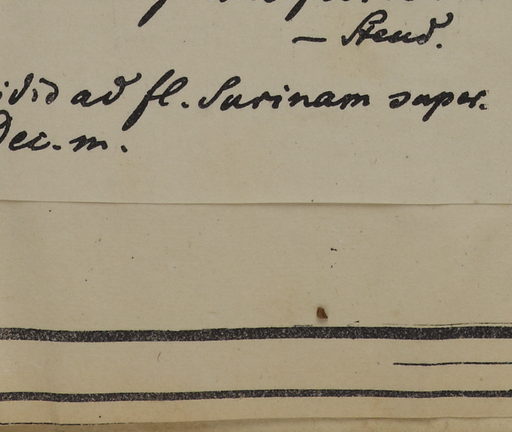 — Steud.
ad fl. Surinam super.
Dec. m.